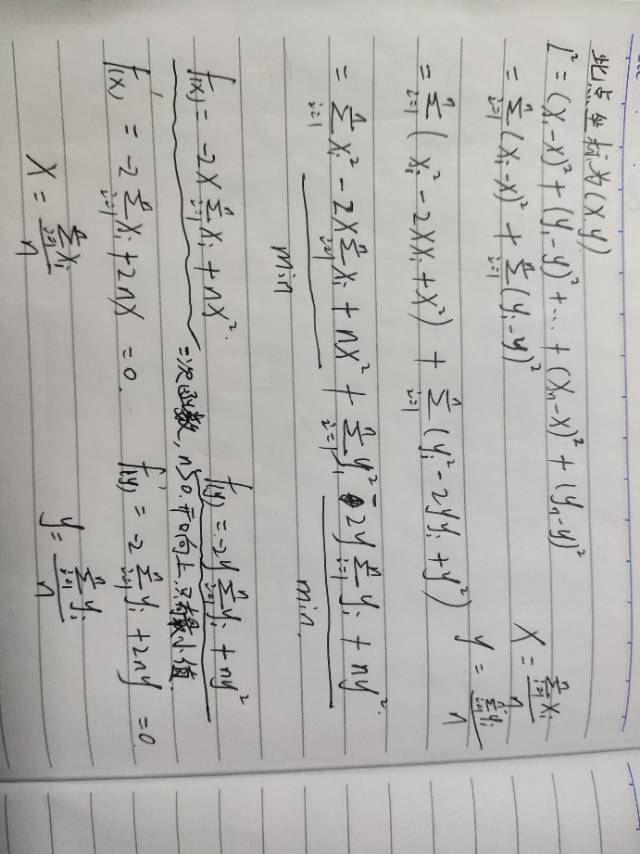 此点坐标为(x,y)
l² = (x₁-x)² + (y₁-y)² + … + (xₙ-x)² + (yₙ-y)²
= Σᵢ₌₁ⁿ (xᵢ-x)² + Σᵢ₌₁ⁿ (yᵢ-y)²
x = Σᵢ₌₁ⁿ xᵢ / n
= Σᵢ₌₁ⁿ (xᵢ² - 2xxᵢ + x²) + Σᵢ₌₁ⁿ (yᵢ² - 2yyᵢ + y²)
y = Σᵢ₌₁ⁿ yᵢ / n
= Σᵢ₌₁ⁿ xᵢ² - 2x Σᵢ₌₁ⁿ xᵢ + nx² + Σᵢ₌₁ⁿ yᵢ² - 2y Σᵢ₌₁ⁿ yᵢ + ny².
min min.
f(x) = -2x Σᵢ₌₁ⁿ xᵢ + nx². f(y) = -2y Σᵢ₌₁ⁿ yᵢ + ny²
二次函数, n>0. 开口向上, 只有最小值.
f'(x) = -2 Σᵢ₌₁ⁿ xᵢ + 2nx = 0. f'(y) = -2 Σᵢ₌₁ⁿ yᵢ + 2ny = 0.
x = Σᵢ₌₁ⁿ xᵢ / n y = Σᵢ₌₁ⁿ yᵢ / n